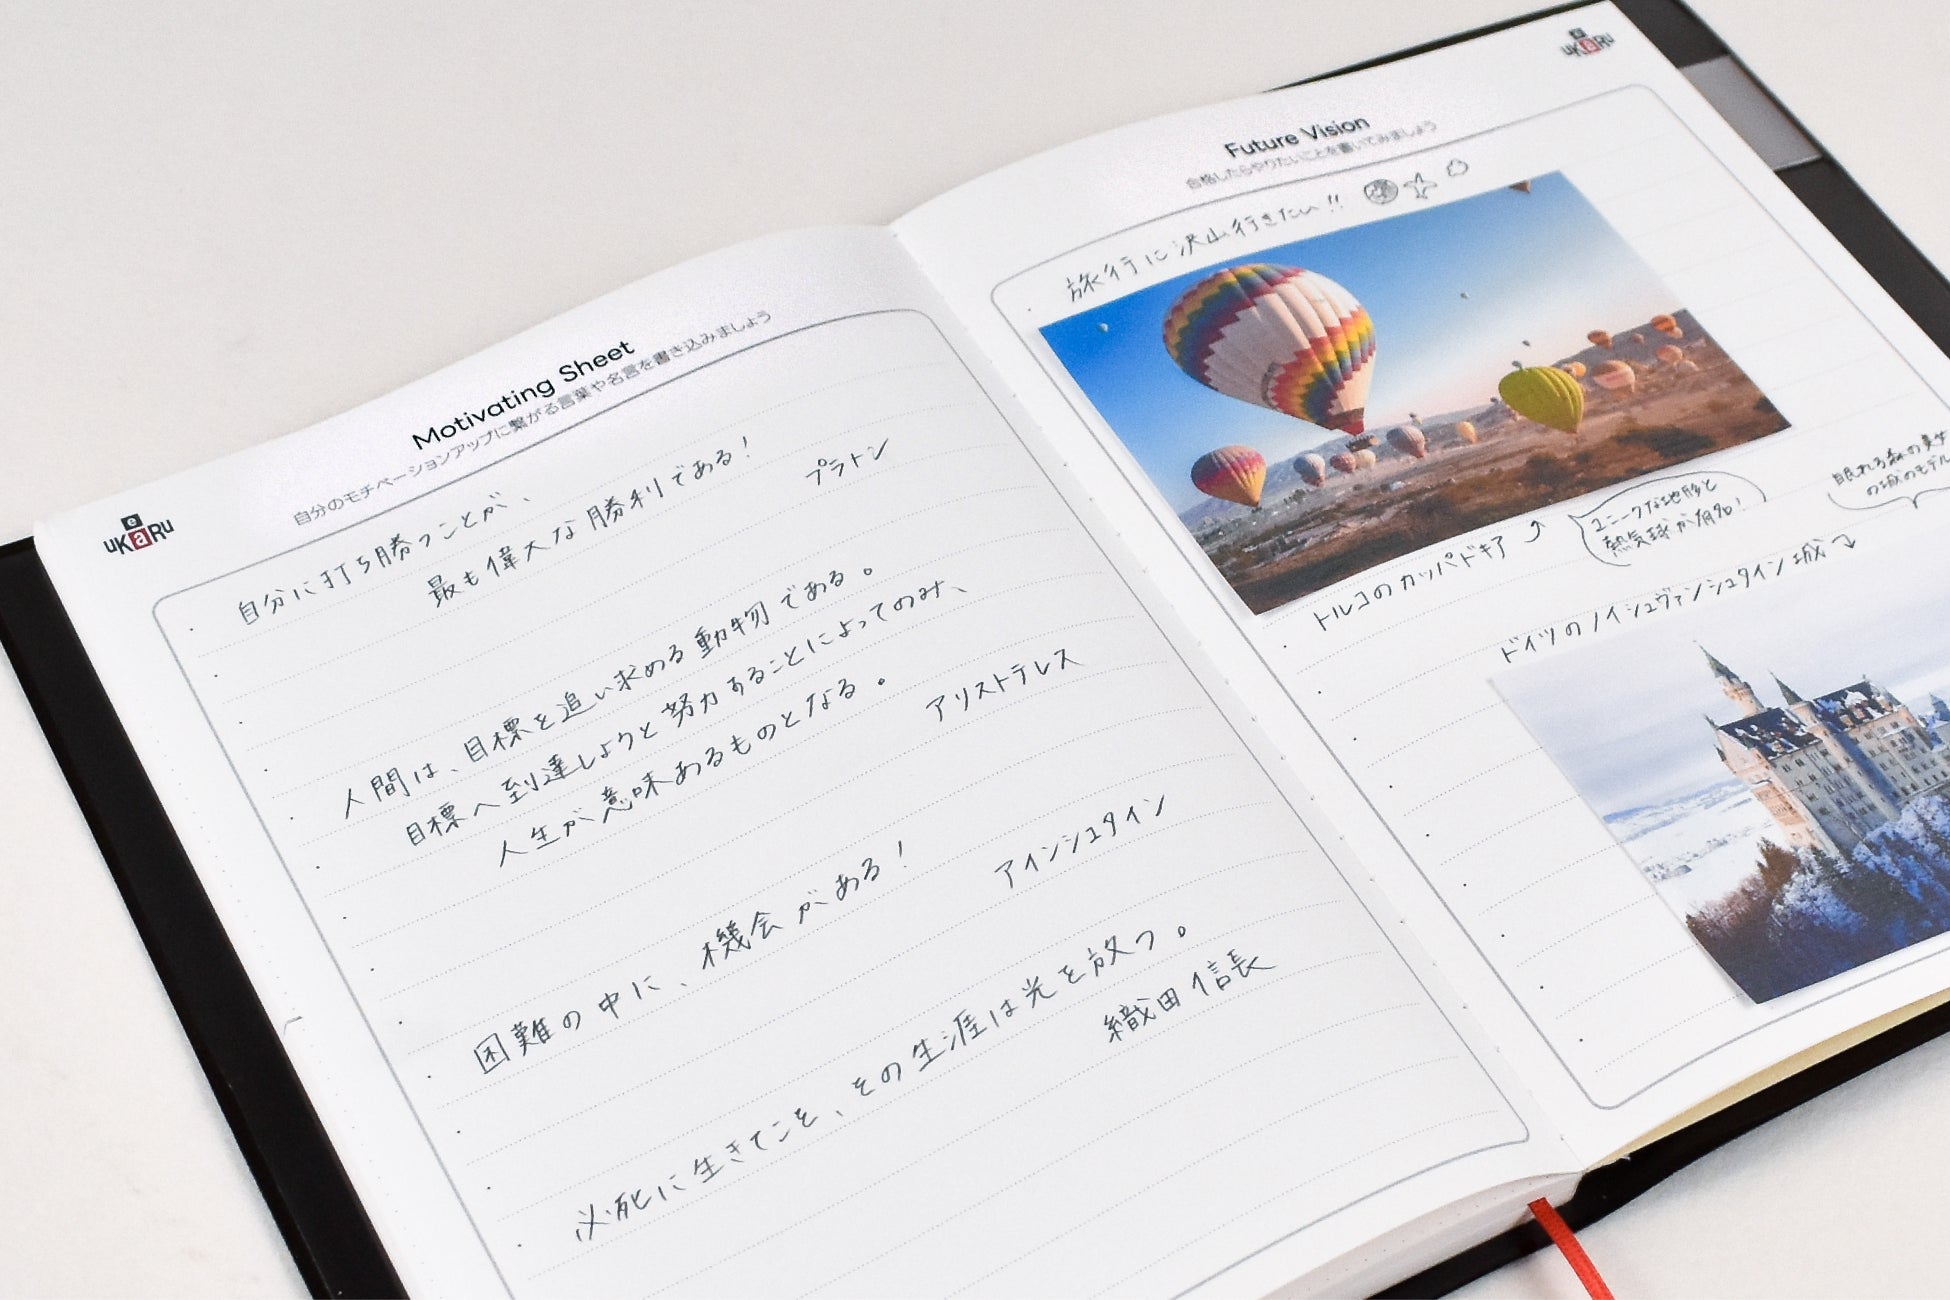 e
uKaRu
Motivating Sheet
自分のモチベーションアップに繋がる言葉や名言を書き込みましょう
自分に打ち勝つことが、
最も偉大な勝利である!
プラトン
人間は、目標を追い求める動物である。
目標へ到達しようと努力あることによってのみ、
人生が意味あるものとなる。
アリストテレス
困難の中に、機会がある!
アインシュタイン
必死に生きてこそ、その生涯は光を放つ。
織田信長
e
uKaRu
Future Vision
合格したらやりたいことを書いてみましょう
旅行に沢山行きたい!!
トルコのカッパドキア
ユニークな地形と
熱気球が有名!
眠れる森の美女
の城のモデル
ドイツのノイシュヴァンシュタイン城